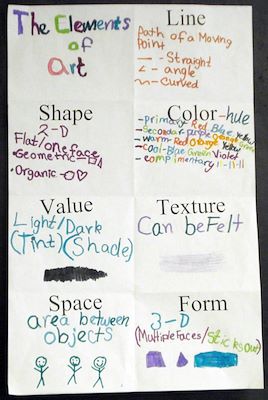 The Elements
of
Art
Line
Path of a Moving
Point
- Straight
- angle
- curved
Shape
2-D
Flat/one face
•Geometric-
•Organic-
Color-hue
-primary Red Blue Yellow
-Secondary purple orange green
-warm-Red Orange Yellow
-cool-Blue Green Violet
-complimentary
Value
Light/Dark
(Tint)(Shade)
Texture
Can be Felt
Space
area between
objects
Form
3-D
(Multiple Faces/Sticks out)